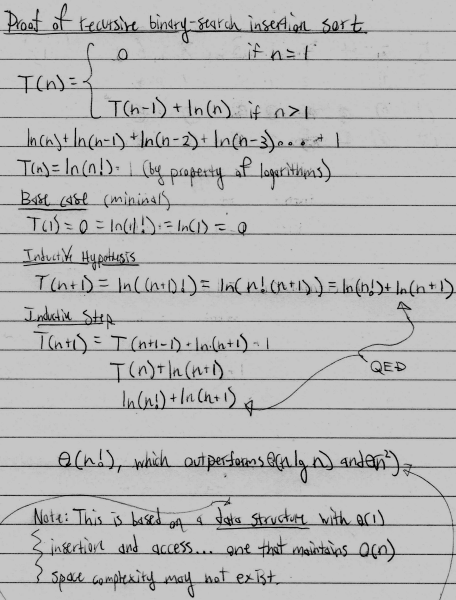 Proof of recursive binary-search insertion sort
T(n) = { 0 if n=1
T(n-1) + ln(n) if n>1
ln(n) + ln(n-1) + ln(n-2) + ln(n-3)... + 1
T(n) = ln(n!) - 1 (by property of logarithms)
Base case (minimal)
T(1) = 0 = ln(1!) = ln(1) = 0
Inductive Hypothesis
T(n+1) = ln((n+1)!) = ln(n!(n+1)) = ln(n!) + ln(n+1)
Inductive Step
T(n+1) = T(n+1-1) + ln(n+1) - 1
T(n) + ln(n+1)
QED
ln(n!) + ln(n+1)
Θ(n!), which outperforms Θ(n lg n) and Θ(n²)
Note: This is based on a data structure with Θ(1)
insertion and access... one that maintains O(n)
space complexity may not exist.